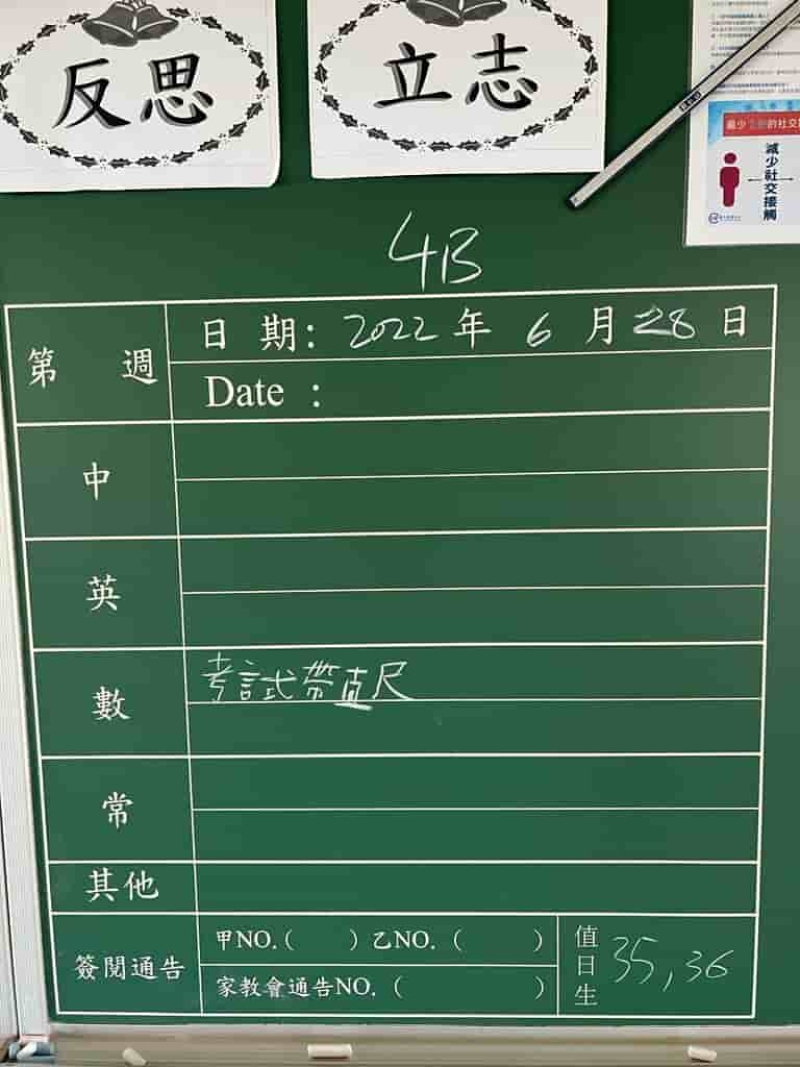 反思
立志
減少社交接觸
4B
第 週
日 期: 2022 年 6 月 28 日
Date :
中
英
數 考試帶直尺
常
其他
簽閱通告
甲NO.( )乙NO. ( )
家教會通告NO. ( )
值日生 35,36